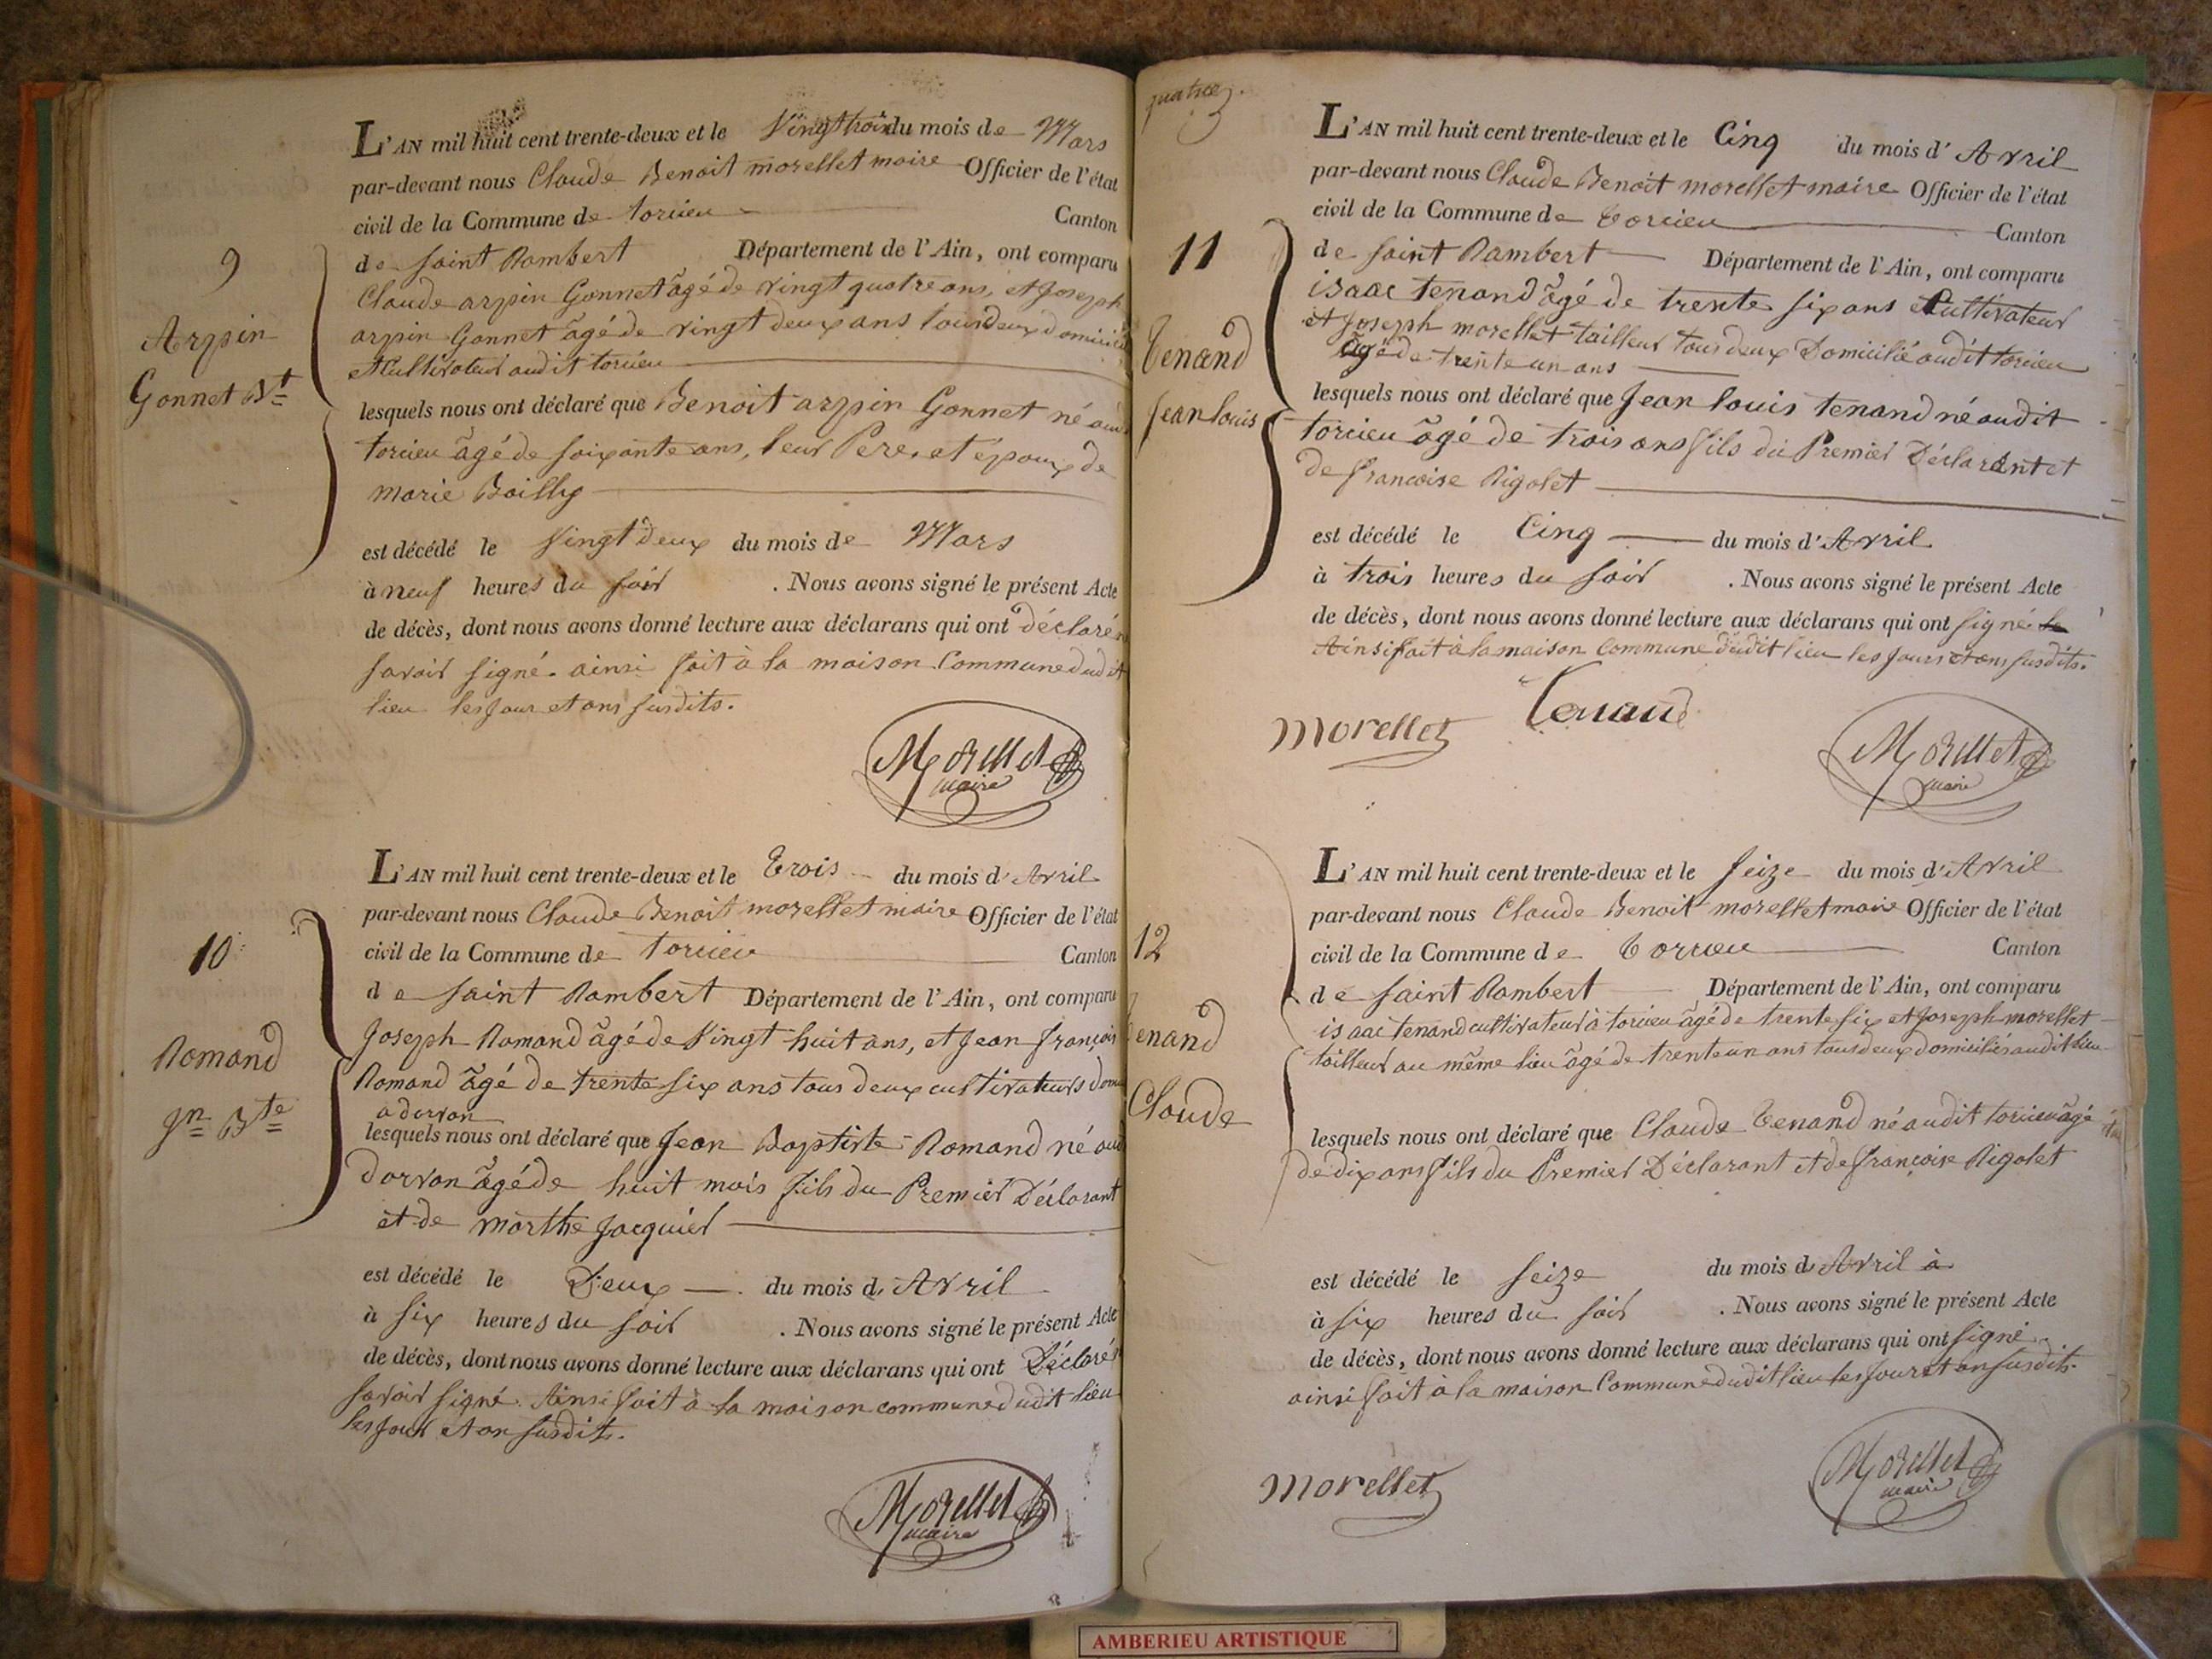 9
Arpin
Gonnet Bt
L'AN mil huit cent trente-deux et le Vingt trois du mois de Mars
par-devant nous Claude Benoit morellet maire Officier de l'état
civil de la Commune de torcieu Canton
de Saint Rambert Département de l'Ain, ont comparu
Claude arpin Gonnet âgé de vingt quatre ans, et Joseph
arpin Gonnet âgé de vingt deux ans tous deux domicilié
et Cultivateur audit torcieu
lesquels nous ont déclaré que Benoit arpin Gonnet né aud
torcieu âgé de soixante ans, leur Pere, et époux de
marie Bailly
est décédé le Vingt deux du mois de Mars
à neuf heures du soir . Nous avons signé le présent Acte
de décès, dont nous avons donné lecture aux déclarans qui ont déclaré n
savoir signé. ainsi fait à la maison Commune dudit
lieu les jour et ans susdits.
Morellet
maire
10
Romand
Jn Bte
L'AN mil huit cent trente-deux et le Trois du mois d'Avril
par-devant nous Claude Benoit morellet maire Officier de l'état
civil de la Commune de Torcieu Canton
de Saint Rambert Département de l'Ain, ont comparu
Joseph Romand âgé de Vingt huit ans, et Jean françois
Romand âgé de trente six ans tous deux cultivateurs dom
a dorvan
lesquels nous ont déclaré que Jean Baptiste Romand né aud
Dorvan âgé de huit mois fils du Premier Déclarant
et de marthe Jacquier
est décédé le Deux du mois d'Avril
à Six heures du soir . Nous avons signé le présent Acte
de décès, dont nous avons donné lecture aux déclarans qui ont Déclaré n
savoir signé. Ainsi fait à la maison commune dudit lieu
les jour et an susdits.
Morellet
maire
quatre
11
Tenand
Jean louis
L'AN mil huit cent trente-deux et le Cinq du mois d'Avril
par-devant nous Claude Benoit morellet maire Officier de l'état
civil de la Commune de Torcieu Canton
de Saint Rambert Département de l'Ain, ont comparu
isaac tenand âgé de trente six ans Cultivateur
et Joseph morellet tailleur tous deux Domicilié audit torcieu
âgé de trente un ans
lesquels nous ont déclaré que Jean louis tenand né audit
torcieu âgé de trois ans fils du Premier Déclarant et
de francoise Rigolet
est décédé le Cinq du mois d'Avril
à trois heures du soir . Nous avons signé le présent Acte
de décès, dont nous avons donné lecture aux déclarans qui ont signé
Ainsi fait à la maison Commune dudit lieu les jours et ans susdits.
morellet Tenand
Morellet
maire
12
Tenand
Claude
L'AN mil huit cent trente-deux et le Seize du mois d'Avril
par-devant nous Claude Benoit morellet maire Officier de l'état
civil de la Commune de Torcieu Canton
de Saint Rambert Département de l'Ain, ont comparu
isaac tenand cultivateur à torcieu âgé de trente six et Joseph morellet
tailleur au même lieu âgé de trente un ans tous deux domiciliés audit lieu
lesquels nous ont déclaré que Claude Tenand né audit torcieu âgé
de dix ans fils du Premier Déclarant et de françoise Rigolet
est décédé le Seize du mois d'Avril à
à six heures du soir . Nous avons signé le présent Acte
de décès, dont nous avons donné lecture aux déclarans qui ont signé
ainsi fait à la maison Commune dudit lieu les jour et an susdits.
morellet
Morellet
maire
AMBERIEU ARTISTIQUE